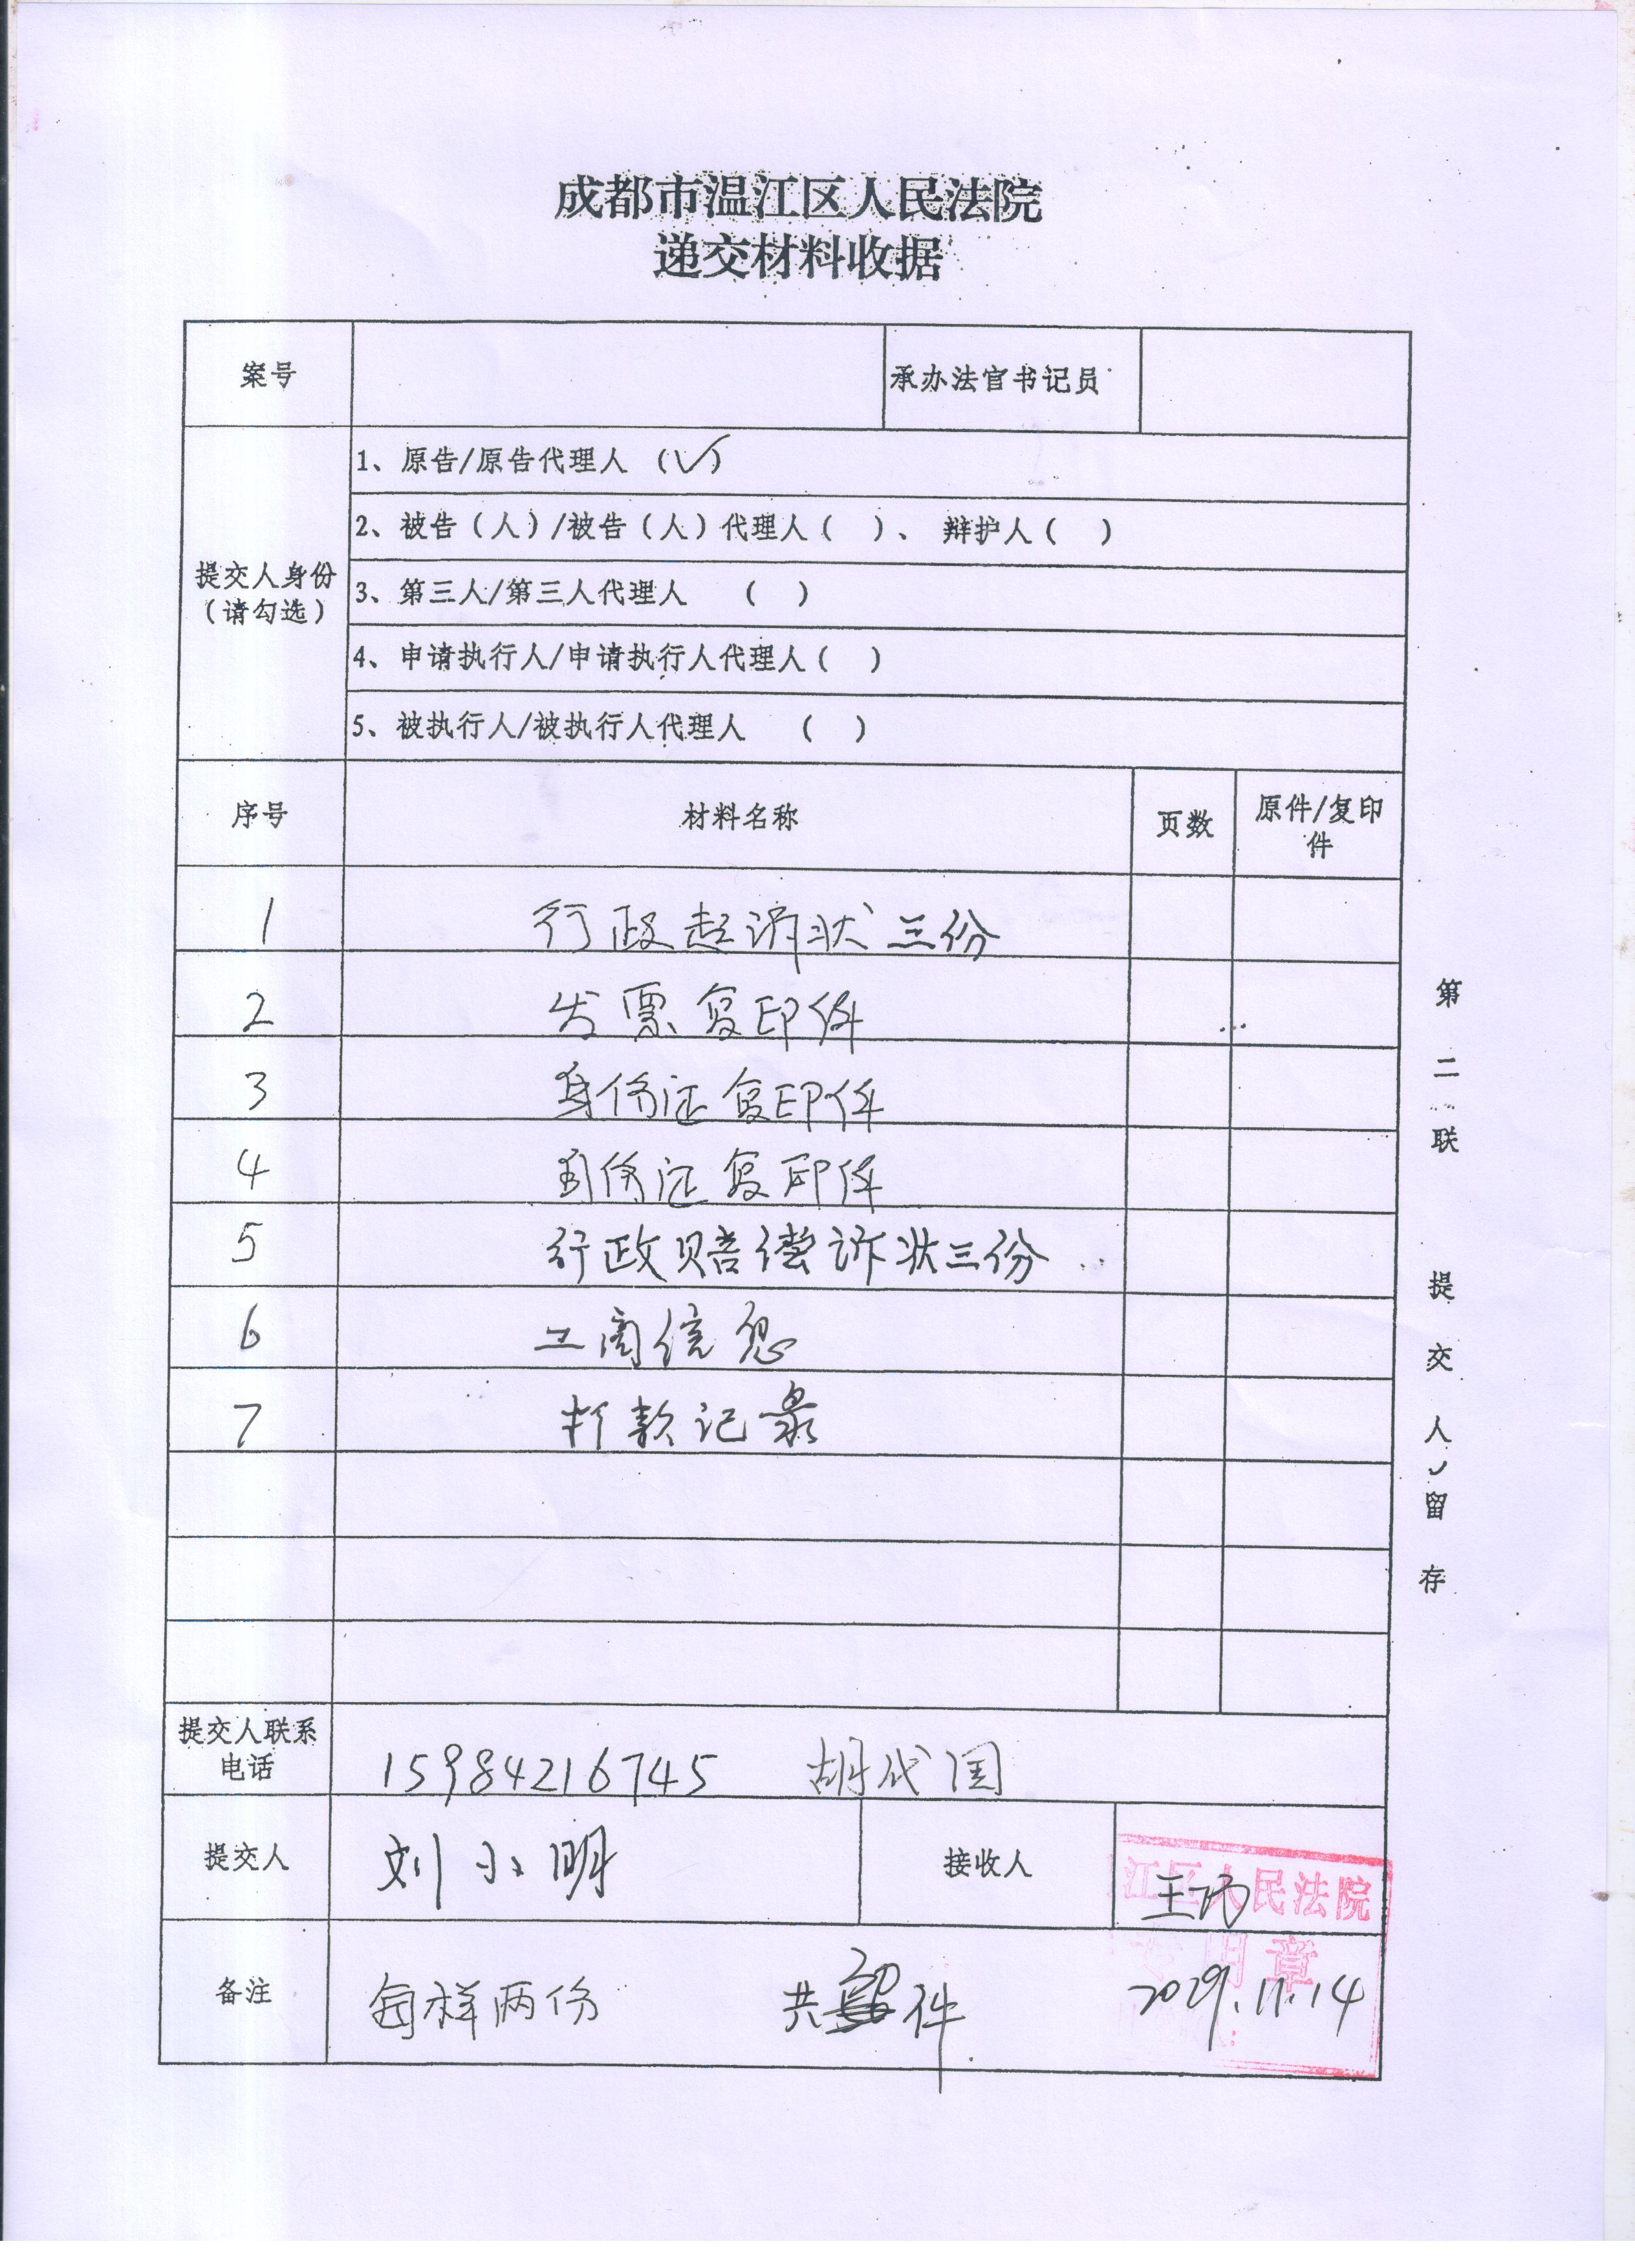 成都市温江区人民法院
递交材料收据
案号 承办法官书记员
提交人身份
（请勾选）
1、原告/原告代理人 （✓）
2、被告（人）/被告（人）代理人（ ）、 辩护人（ ）
3、第三人/第三人代理人 （ ）
4、申请执行人/申请执行人代理人（ ）
5、被执行人/被执行人代理人 （ ）
序号 材料名称 页数 原件/复印件
1 行政起诉状三份
2 发票复印件
3 身份证复印件
4 身份证复印件
5 行政赔偿诉状三份
6 工商信息
7 打款记录
第二联 提交人留存
提交人联系电话 15984216745 胡代国
提交人 刘小明 接收人 王
江区人民法院
专用章
备注 每样两份 共 件 11.14